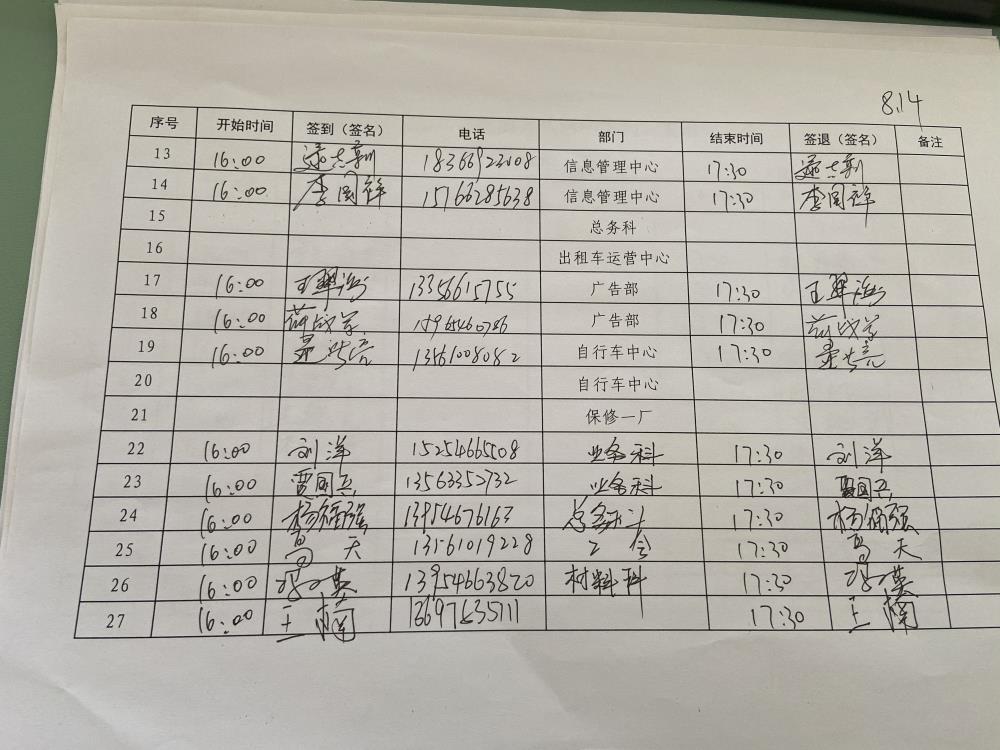 8.14
序号 开始时间 签到（签名） 电话 部门 结束时间 签退（签名） 备注
13 16:00 18366922008 信息管理中心 17:30
14 16:00 李国祥 15766285638 信息管理中心 17:30 李国祥
15 总务科
16 出租车运营中心
17 16:00 13356615755 广告部 17:30
18 16:00 广告部 17:30
19 16:00 13561008082 自行车中心 17:30
20 自行车中心
21 保修一厂
22 16:00 刘洋 15254665508 业务科 17:30 刘洋
23 16:00 贾国兵 13563352732 业务科 17:30 贾国兵
24 16:00 杨福强 13954676163 总务科 17:30 杨福强
25 16:00 高天 13561019228 工会 17:30 高天
26 16:00 13954663820 材料科 17:30
27 16:00 王楠 17:30 王楠